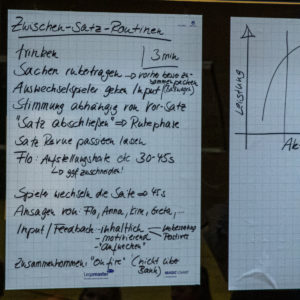 Zwischen-Satz-Routinen
trinken | 3 min
Sachen rübertragen → vorher besser zu-
sammenpacken
Auswechselspieler geben Input (Satzung)
Stimmung abhängig von Vor-Satz
"Satz abschließen" ⇒ Ruhephase
Satz Revue passieren lassen
Flo: Aufstellungshake etc 30-45s
↳ ggf zuschneiden!
Spieler wechseln die Seite ⇒ 45s
Ansagen von: Flo, Anna, Kim, Greta, ...
Input/Feedback - inhaltlich
- motivierend
Positives
- "aufwecken"
Zusammenkommen: "On fire" (nicht über
Bank)
Legamaster
MAGIC-CHART
Leistung